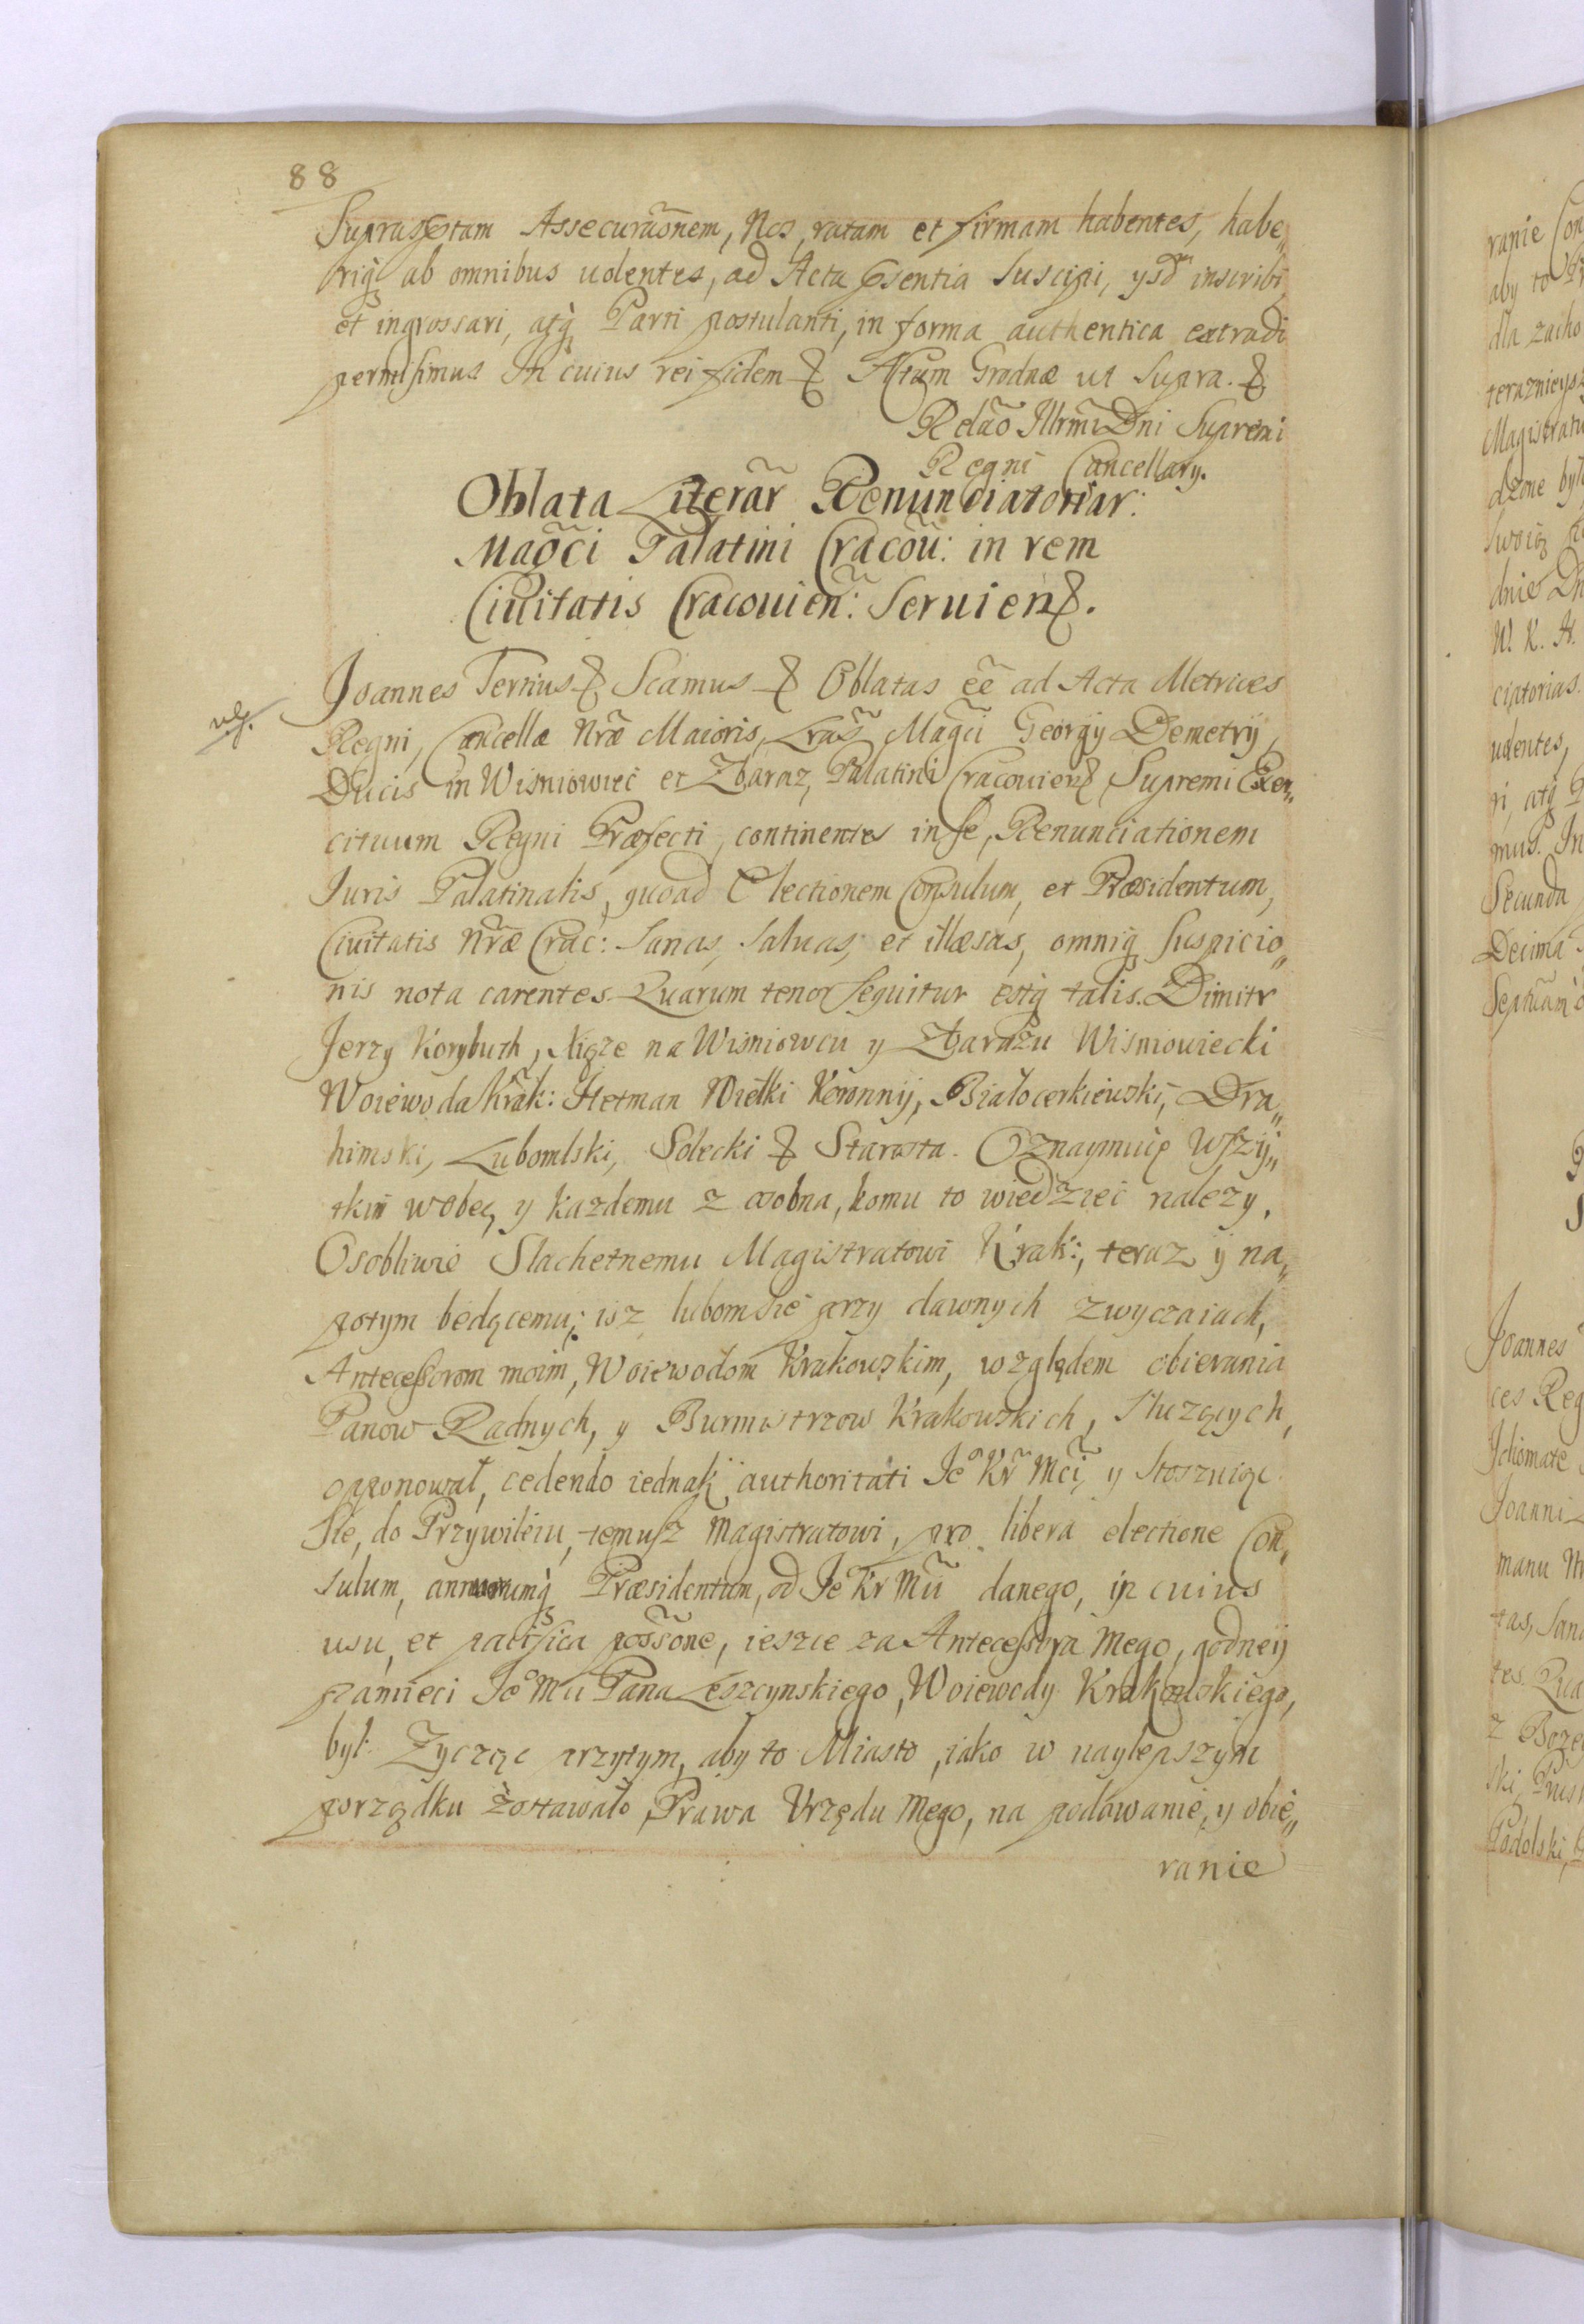 88
Suprascptam Assecuraõnem, Nos, ratam et firmam habentes, habe„
riq̃ ab omnibus uolentes, ad Acta p̃sentia suscipi, ysdem inscribi
et ingrossari, atq̃ Parti postulanti, in forma authentica extradi
permisimus. In cuius rei fidem & Actum Grodnæ ut supra. &
Relaõ Illrmi Dni Supremi
Regni Cancellary.
Oblata Literar̃ Renunciatoriar:
Magci Palatini Cracoũ: in rem
Ciuitatis Cracouien̄: Seruien&.
Joannes Tertius & Scamus & Oblatas eẽ ad Acta Metrices
Regni, Cancellæ Nræ Maioris, Lras Magci Georgij Demetrij,
Ducis in Wisniowiec et Zbaraz, Palatini Cracouien& Supremi Exer„
cituum Regni Præfecti, continentes in se, Renunciationem
Iuris Palatinalis, quoad Electionem Consulum, et Præsidentum,
Ciuitatis Nræ Crac: Sanas, saluas, et illæsas, omniq̃ suspicio„
nis nota carentes. Quarum tenor sequitur estq̃ talis. Dimitr
Jerzy Korybuth, Xiąze na Wisniowcu y Zbarazu Wisniowiecki
Woiewoda Krak: Hetman Wielki Koronnij, Białocerkiewski, Dra„
himski, Lubomlski, Solecki & Starosta. Oznaymuię Wszÿ„
tkim wobec, y kazdemu z osobna, komu to wiedziec nalezy,
Osobliwie Slachetnemu Magistratowi Krak:, teraz ÿ na„
potym będącemu; isz lubom sie przy dawnych zwyczaiach,
Antecessorom moim, Woiewodom Krakowskim, względem obierania
Panow Radnych, y Burmistrzow Krakowskich, Słuzących,
opponował, cedendo iednak authoritati Jeº Kr̃ Mci, y stoszuiąc
sie, do Przywileiu, temusz Magistratowi, pro libera electione Con„
sulum, annuorumq̃ Præsidentum, od Jeº Kr Mci danego, in cuius
usu, et pacifica possõne, iescze za Antecessora Mego, godneÿ
pamieci Jeº Mci Pana Leszcynskiego, Woiewody Krakowskiego,
był. Zycząc przytym, aby to Miasto, iako w naylepszym
porządku zostawało, Prawa Urzędu Mego, na podawanie, y obie„
ranie